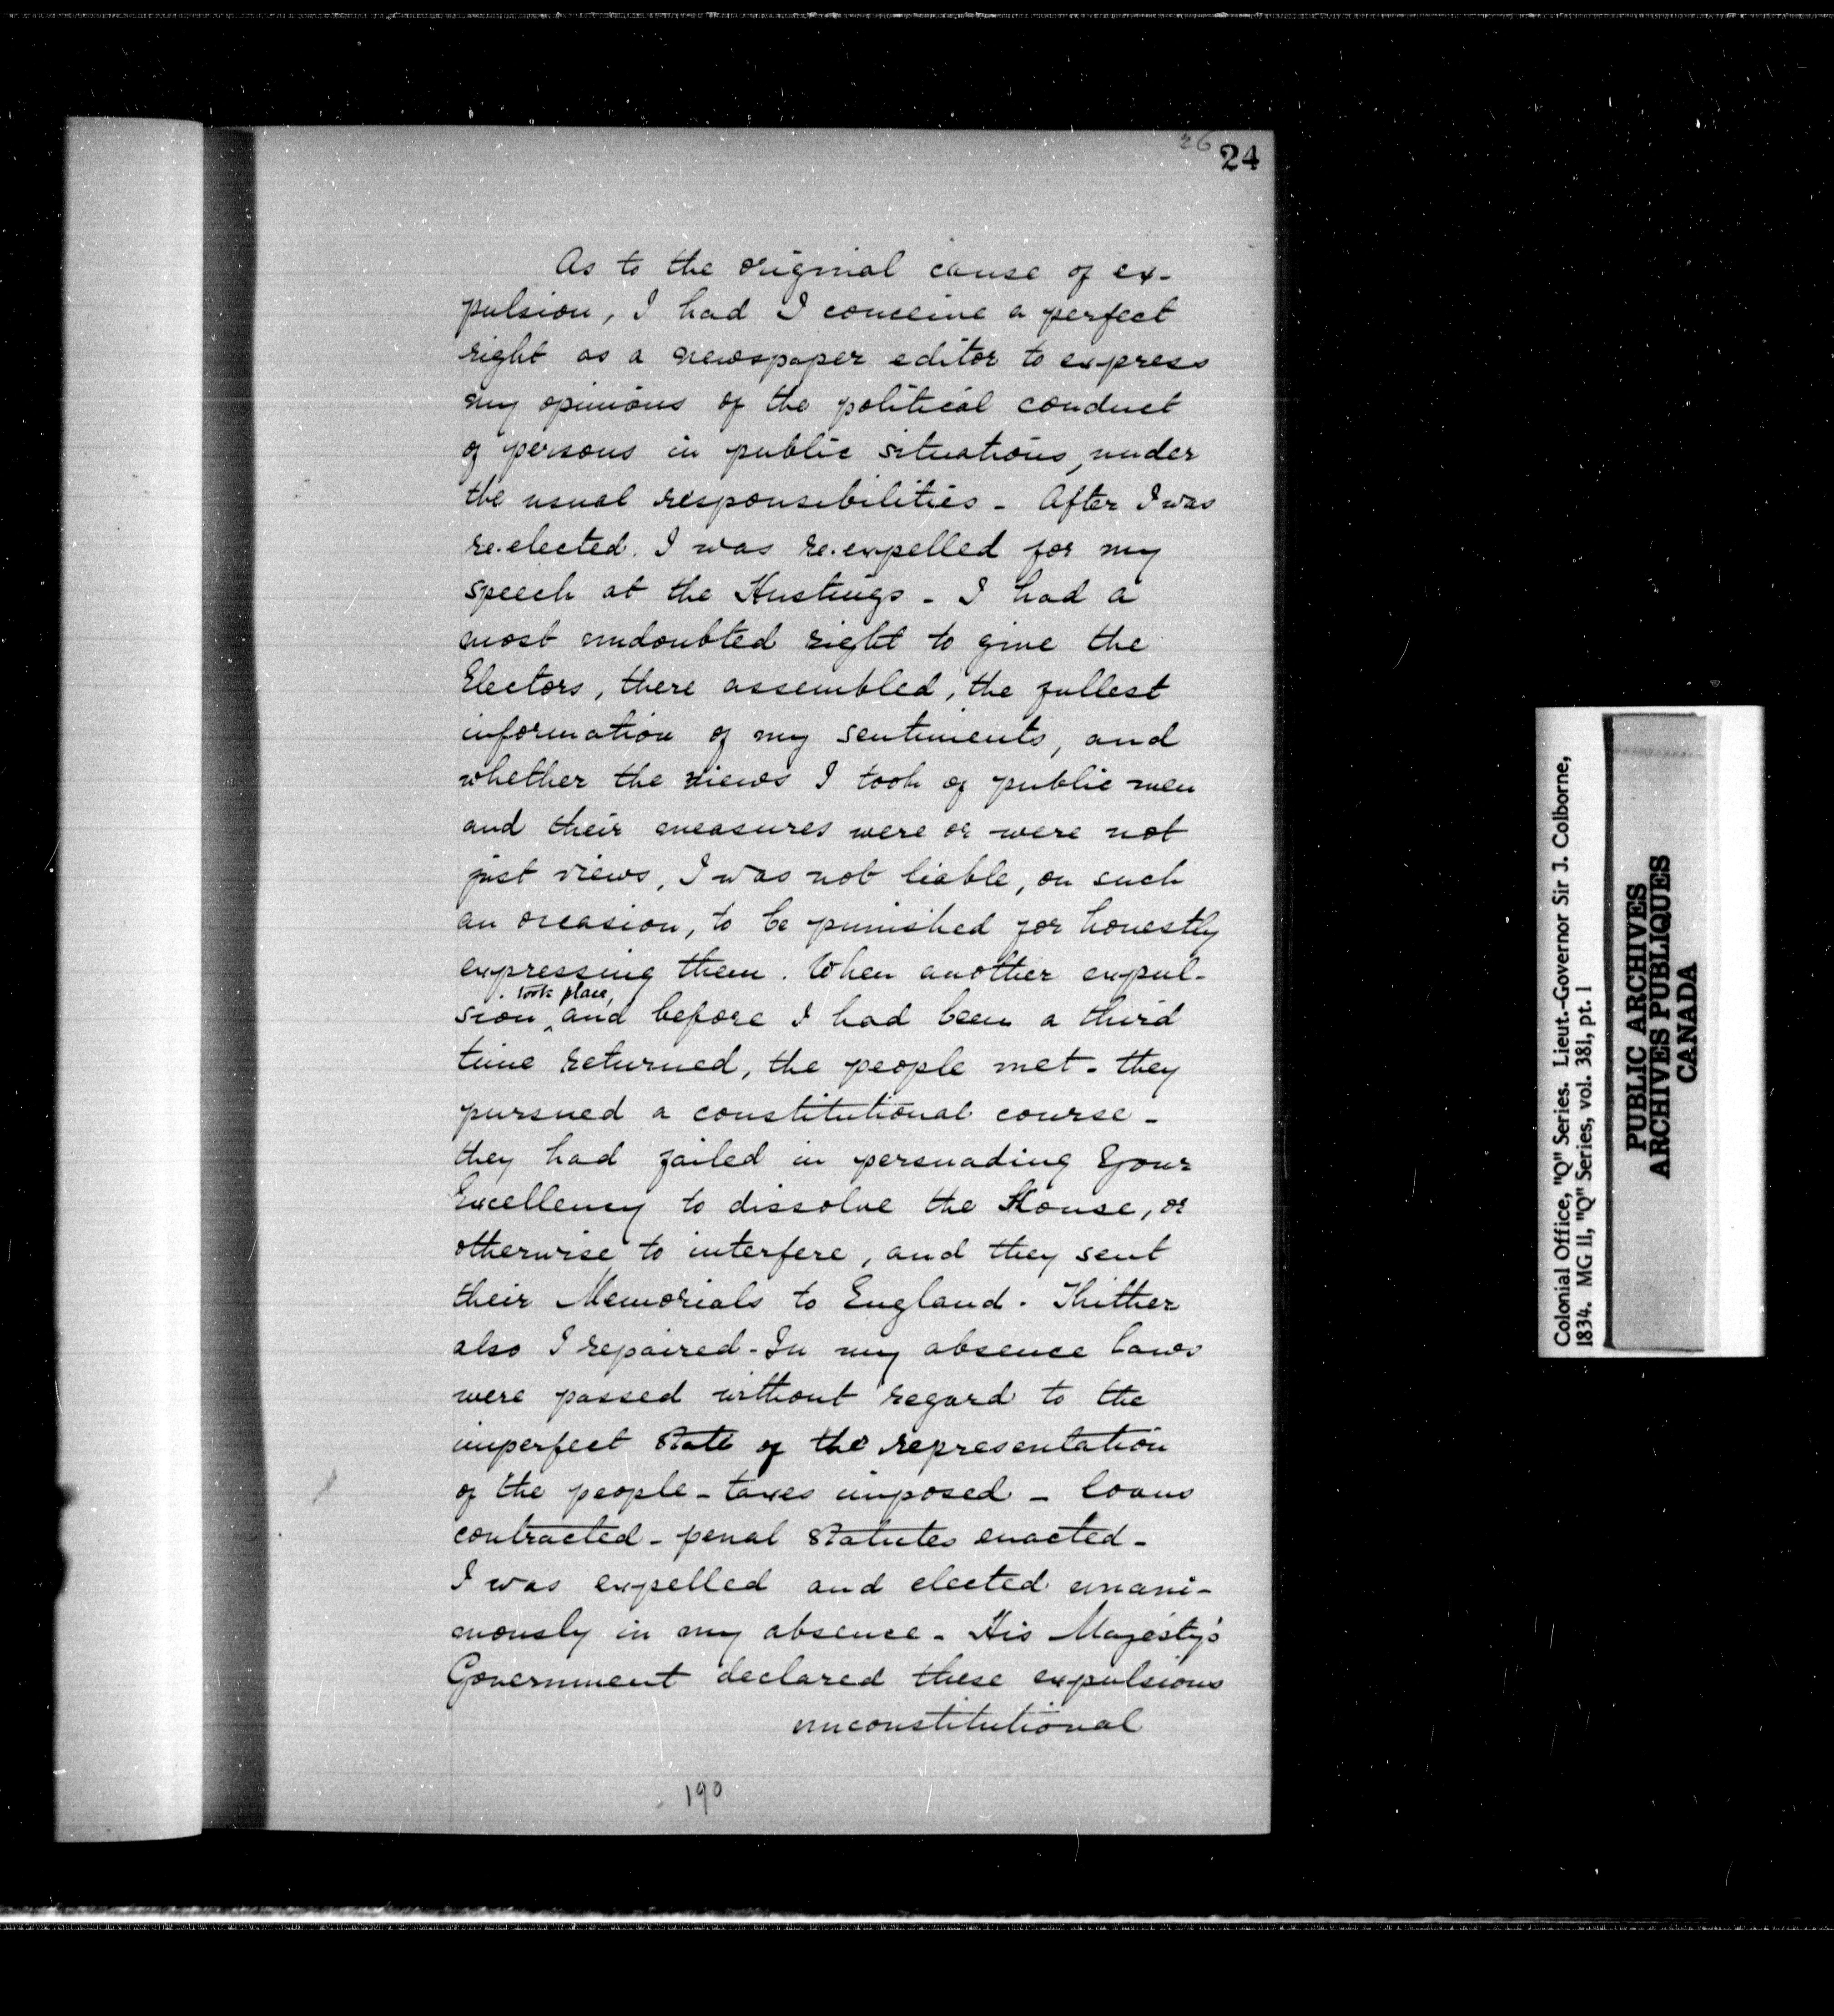 26
24
As to the original cause of ex-
pulsion, I had I conceive a perfect
right as a newspaper editor to express
my opinions of the political conduct
of persons in public situations, under
the usual responsibilities - After I was
re.elected. I was re.expelled for my
speech at the Hustings - I had a
most undoubted right to give the
Electors, there assembled, the fullest
information of my sentiments, and
whether the views I took of public men
and their measures were or were not
just views, I was not liable, on such
an occasion, to be punished for honestly
expressing them. When another expul-
took place,
sion ^ and before I had been a third
time returned, the people met - they
pursued a constitutional course -
they had failed in persuading Your
Excellency to dissolve the House, or
otherwise to interfere, and they sent
their Memorials to England. Thither
also I repaired - In my absence laws
were passed without regard to the
imperfect state of the representation
of the people - taxes imposed - loans
contracted - penal statutes enacted -
I was expelled and elected unani-
mously in my absence - His Majesty's
Government declared these expulsions
unconstitutional
190
Colonial Office, "Q" Series. Lieut.-Governor Sir J. Colborne,
1834. MG 11, "Q" Series, vol. 381, pt. 1
PUBLIC ARCHIVES
ARCHIVES PUBLIQUES
CANADA